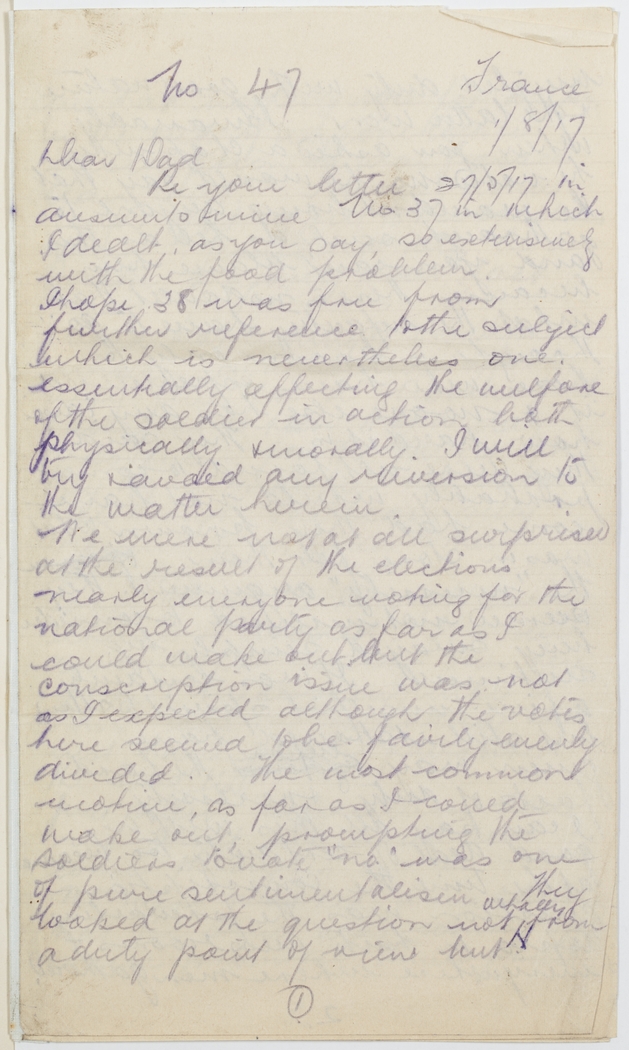 No 47 France
1/8/17
Dear Dad
Re your letter 27/5/17 in
answer to mine No 37 in which
I dealt, as you say, so extensively
with the food problem.
I hope 38 was free from
further reference to the subject
which is nevertheless one.
essentially affecting the welfare
of the soldier in action both
physically & morally. I will
try & avoid any reversion to
the matter herein.
We were not at all surprised
at the result of the elections
nearly everyone voting for the
national party as far as I
could make out but the
conscription issue was not
as I expected although the votes
here seemed to be fairly evenly
divided. The most common
motive, as far as I could
make out, prompting the
soldiers to vote "no" was one
of pure sentimentalism They
looked at the question not from
a duty point of view but
1